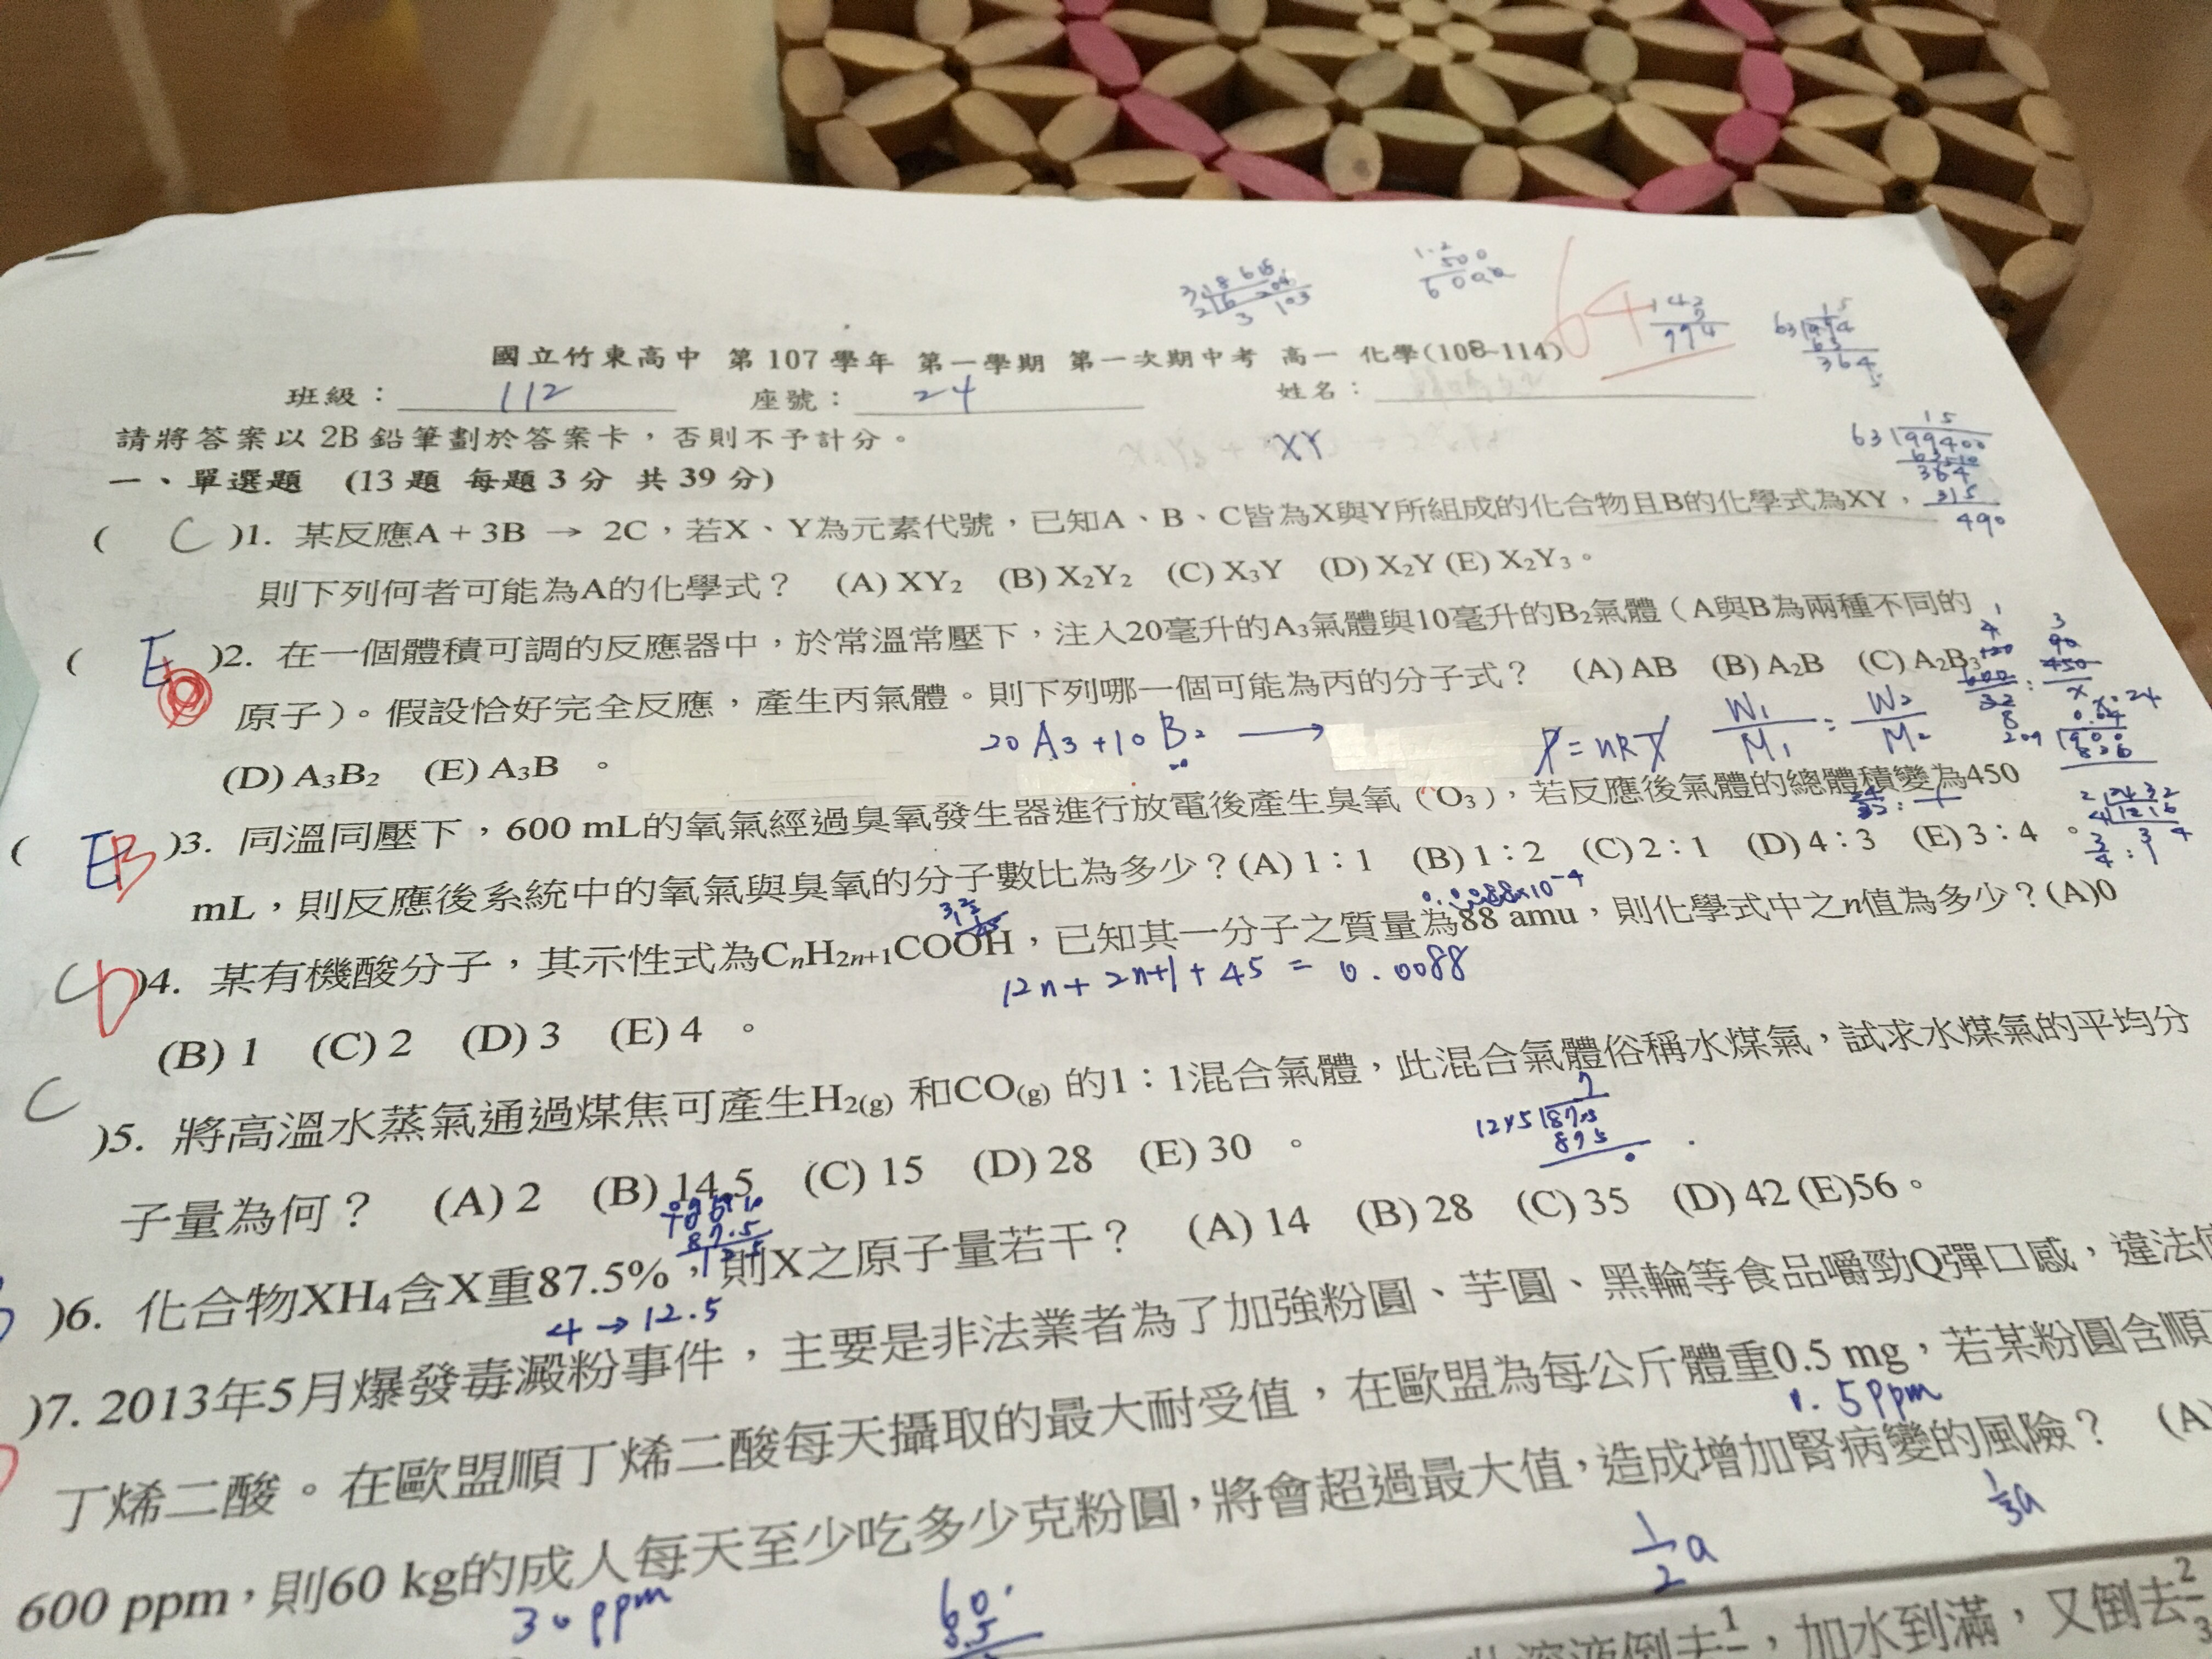 64
國立竹東高中 第 107 學年 第一學期 第一次期中考 高一 化學(108-114)
班級： 112 座號： 24 姓名：
請將答案以 2B 鉛筆劃於答案卡，否則不予計分。
XY
一、單選題 (13 題 每題 3 分 共 39 分)
( C )1. 某反應A + 3B → 2C，若X、Y為元素代號，已知A、B、C皆為X與Y所組成的化合物且B的化學式為XY，
則下列何者可能為A的化學式？ (A) XY₂ (B) X₂Y₂ (C) X₃Y (D) X₂Y (E) X₂Y₃。
( E )2. 在一個體積可調的反應器中，於常溫常壓下，注入20毫升的A₃氣體與10毫升的B₂氣體（A與B為兩種不同的
原子）。假設恰好完全反應，產生丙氣體。則下列哪一個可能為丙的分子式？ (A) AB (B) A₂B (C) A₂B₃
20 A₃ + 10 B₂ → P = nRT W₁/M₁ = W₂/M₂
(D) A₃B₂ (E) A₃B 。
( E B )3. 同溫同壓下，600 mL的氧氣經過臭氧發生器進行放電後產生臭氧（O₃），若反應後氣體的總體積變為450
mL，則反應後系統中的氧氣與臭氧的分子數比為多少？(A) 1：1 (B) 1：2 (C) 2：1 (D) 4：3 (E) 3：4 。
C D )4. 某有機酸分子，其示性式為CₙH₂ₙ₊₁COOH，已知其一分子之質量為88 amu，則化學式中之n值為多少？(A)0
12n + 2n+1 + 45 = 0.0088
(B) 1 (C) 2 (D) 3 (E) 4 。
C )5. 將高溫水蒸氣通過煤焦可產生H₂(g) 和CO(g) 的1：1混合氣體，此混合氣體俗稱水煤氣，試求水煤氣的平均分
子量為何？ (A) 2 (B) 14.5 (C) 15 (D) 28 (E) 30 。
)6. 化合物XH₄含X重87.5%，則X之原子量若干？ (A) 14 (B) 28 (C) 35 (D) 42 (E)56。
4 → 12.5
)7. 2013年5月爆發毒澱粉事件，主要是非法業者為了加強粉圓、芋圓、黑輪等食品嚼勁Q彈口感，違法
丁烯二酸。在歐盟順丁烯二酸每天攝取的最大耐受值，在歐盟為每公斤體重0.5 mg，若某粉圓含順
600 ppm，則60 kg的成人每天至少吃多少克粉圓，將會超過最大值，造成增加腎病變的風險？ (A
30 ppm
1/2 a
1/3 a
溶液倒去1/，加水到滿，又倒去2/3